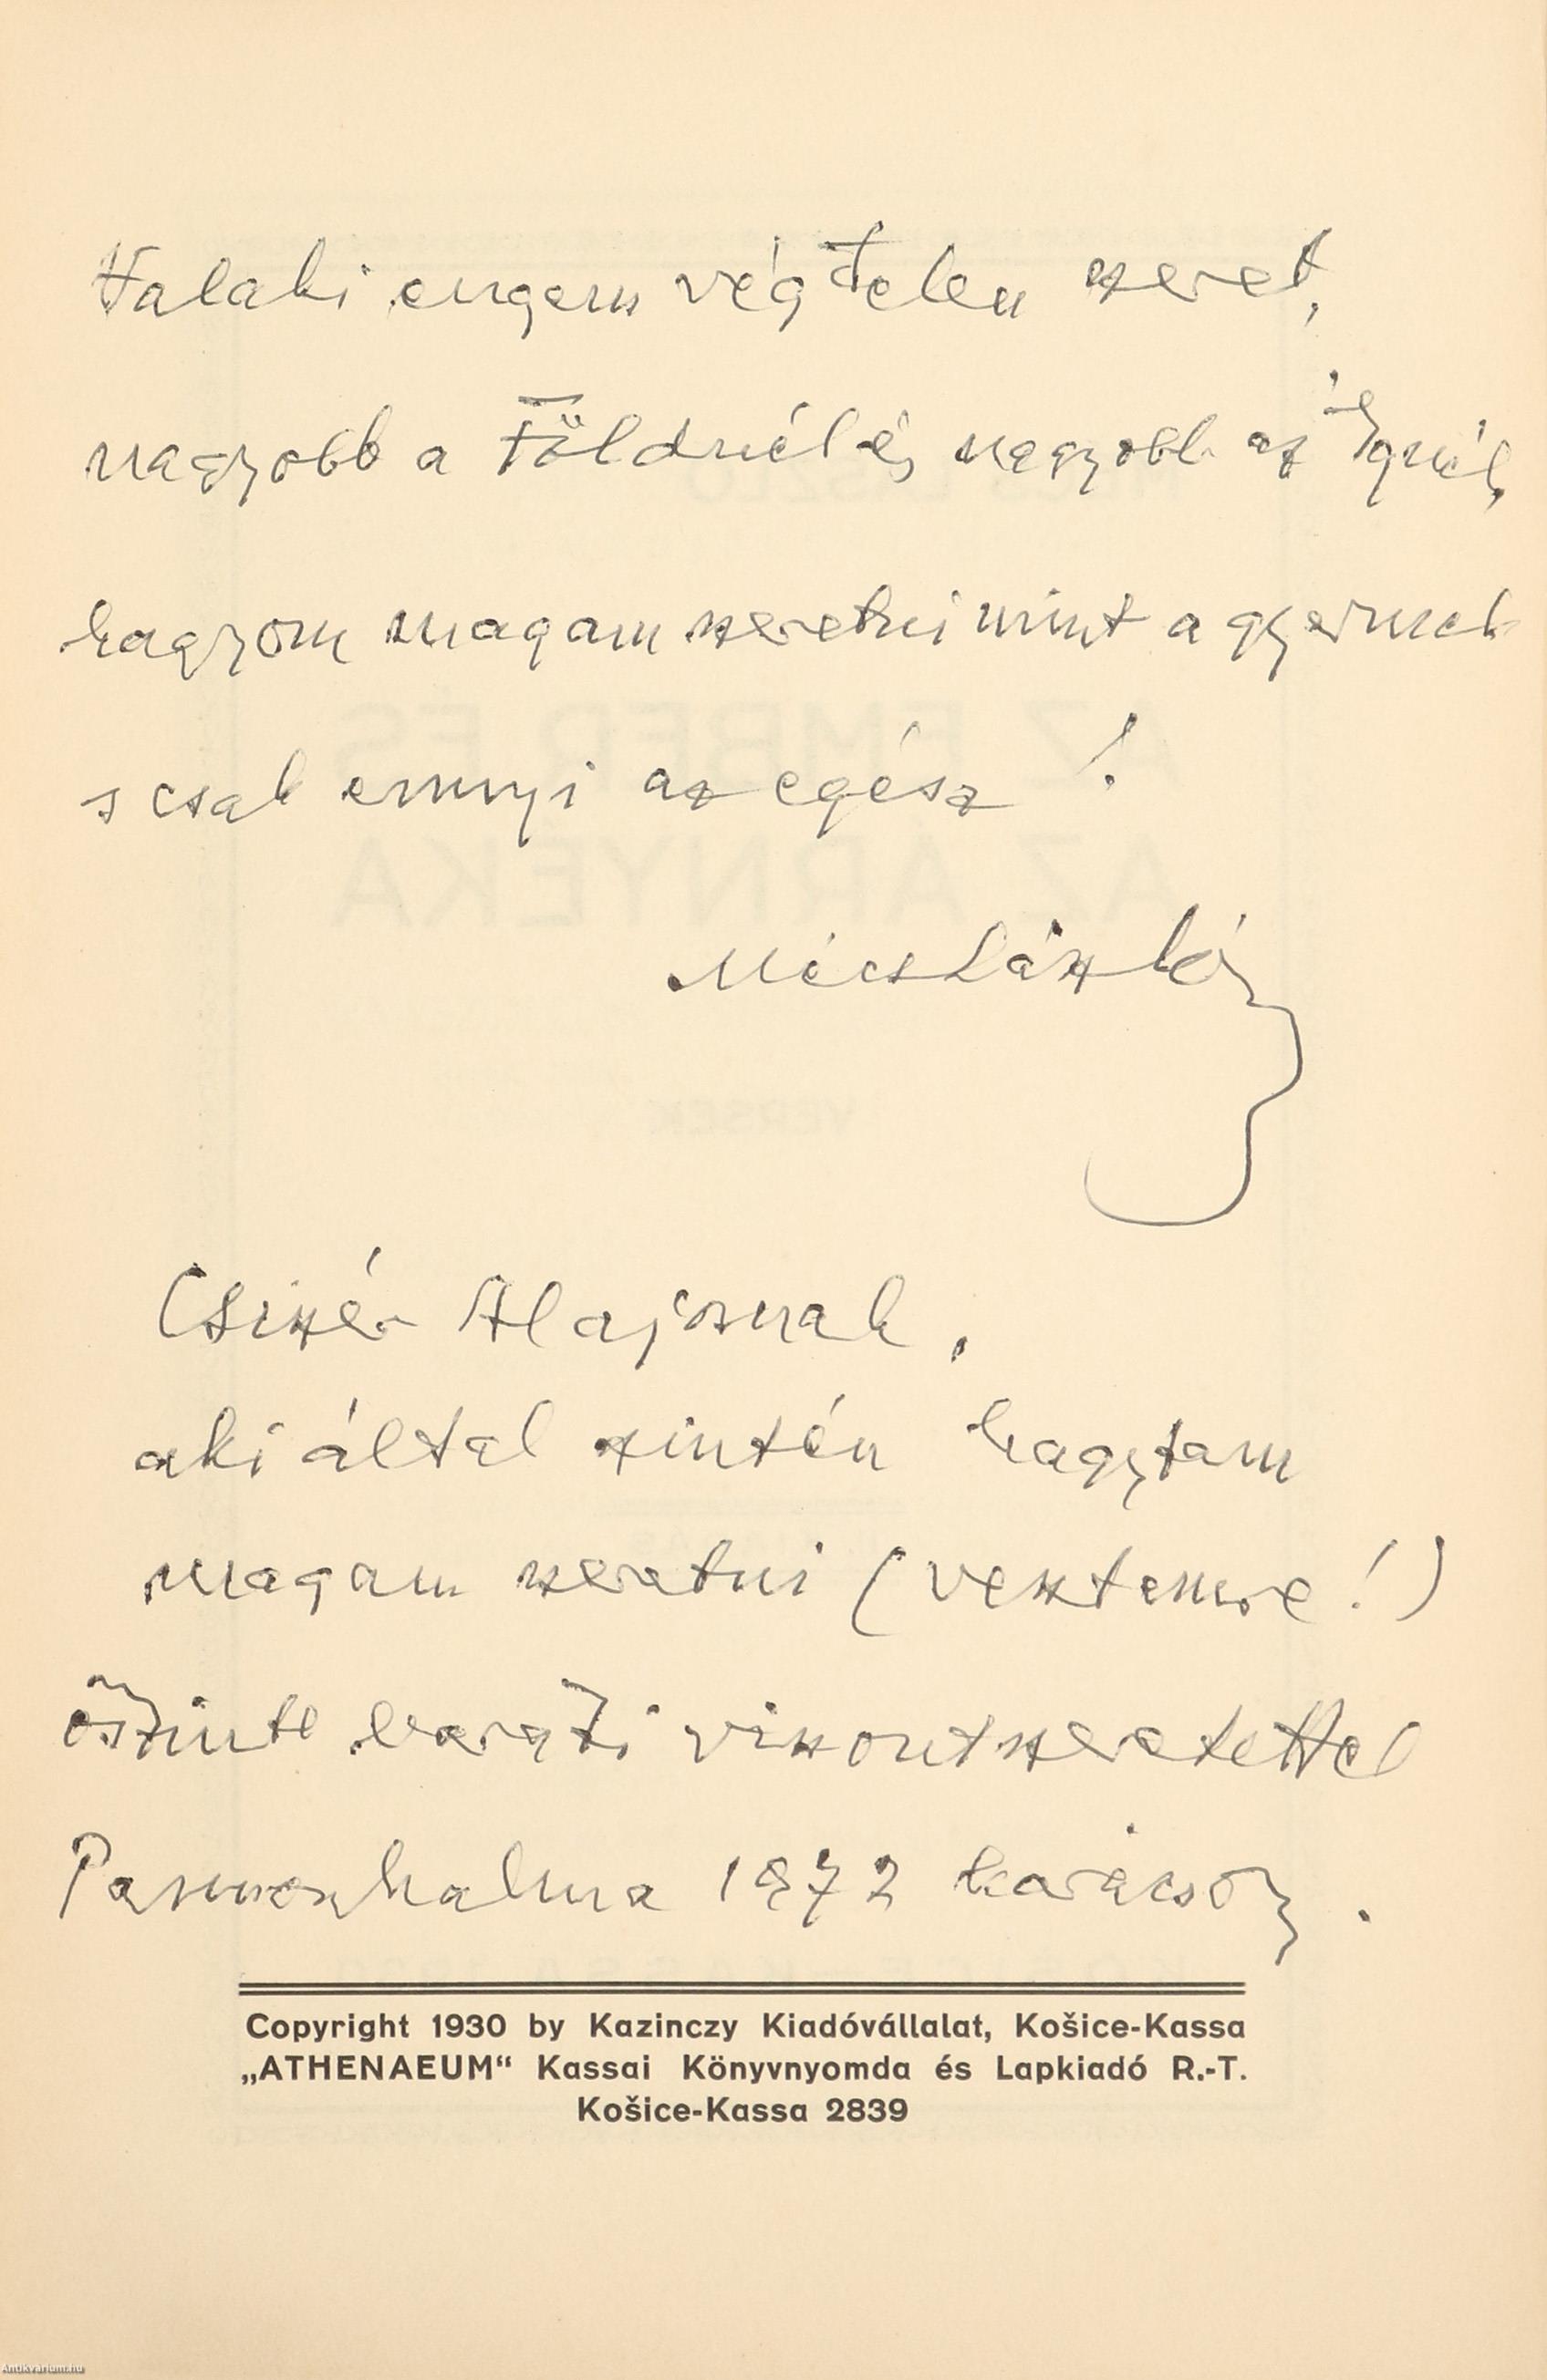 Valaki engem végtelen szeret,
nagyobb a Földnél és nagyobb az Égnél,
hagyom magam szeretni mint a gyermek
s csak ennyi az egész!
Mécs László
Csiszér Alajosnak,
aki által szintén hagytam
magam szeretni (vesztemre!)
őszinte baráti viszontszeretettel
Pannonhalma 1972 karácsony.
Copyright 1930 by Kazinczy Kiadóvállalat, Košice-Kassa
„ATHENAEUM“ Kassai Könyvnyomda és Lapkiadó R.-T.
Košice-Kassa 2839
Antikvarium.hu